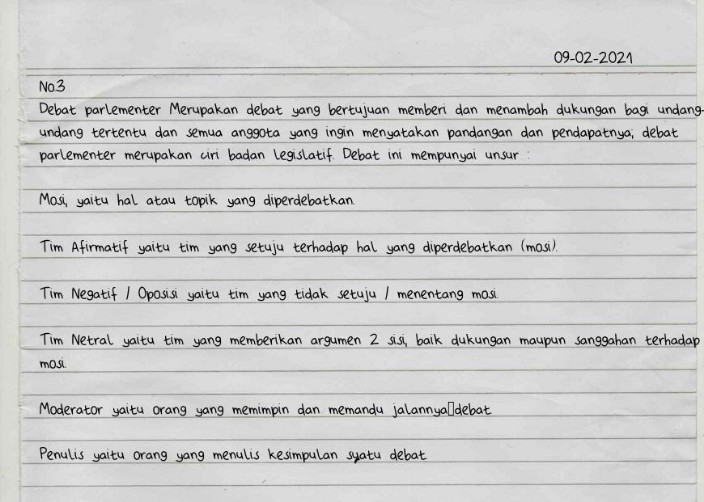 09-02-2021
No3
Debat parlementer Merupakan debat yang bertujuan memberi dan menambah dukungan bagi undang-
undang tertentu dan semua anggota yang ingin menyatakan pandangan dan pendapatnya; debat
parlementer merupakan ciri badan legislatif. Debat ini mempunyai unsur :
Mosi, yaitu hal atau topik yang diperdebatkan.
Tim Afirmatif yaitu tim yang setuju terhadap hal yang diperdebatkan (mosi).
Tim Negatif / Oposisi yaitu tim yang tidak setuju / menentang mosi.
Tim Netral yaitu tim yang memberikan argumen 2 sisi, baik dukungan maupun sanggahan terhadap
mosi.
Moderator yaitu orang yang memimpin dan memandu jalannya▯debat.
Penulis yaitu orang yang menulis kesimpulan syatu debat.